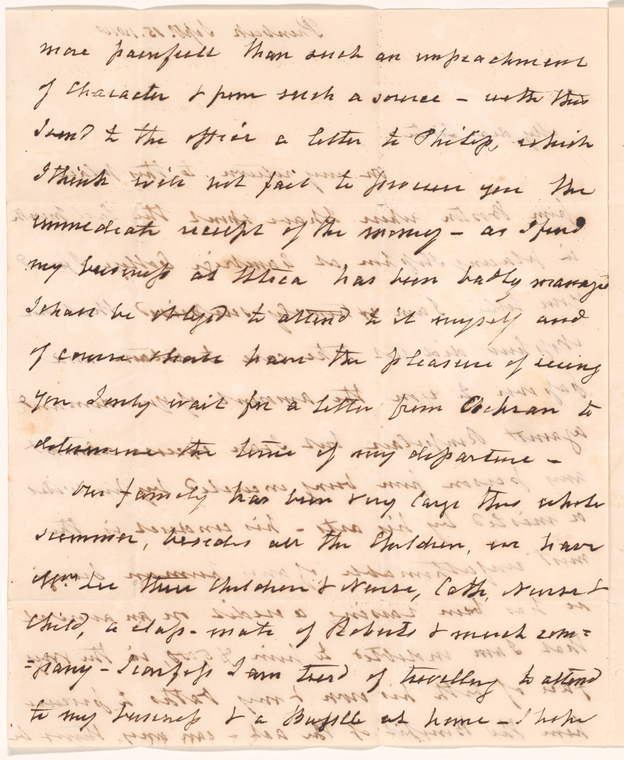 more painfull than such an impeachment
of Character & from such a source – with this
I send to the office a letter to Philip, which
I think will not fail to procure you the
immediate receipt of the money – as I find
my business at Utica has been badly managed
I shall be obliged to attend to it myself and
of course shall have the pleasure of seeing
you I only wait for a letter from Cochran to
determine the time of my departure –
Our family has been very large this whole
summer, besides all the Children, we have
Mrs. Lee three Children & Nurse, Cath, Nurse &
Child, a class-mate of Roberts & much com=
=pany – I confess I am tired of travelling to attend
to my business & a Bustle at home – I hope